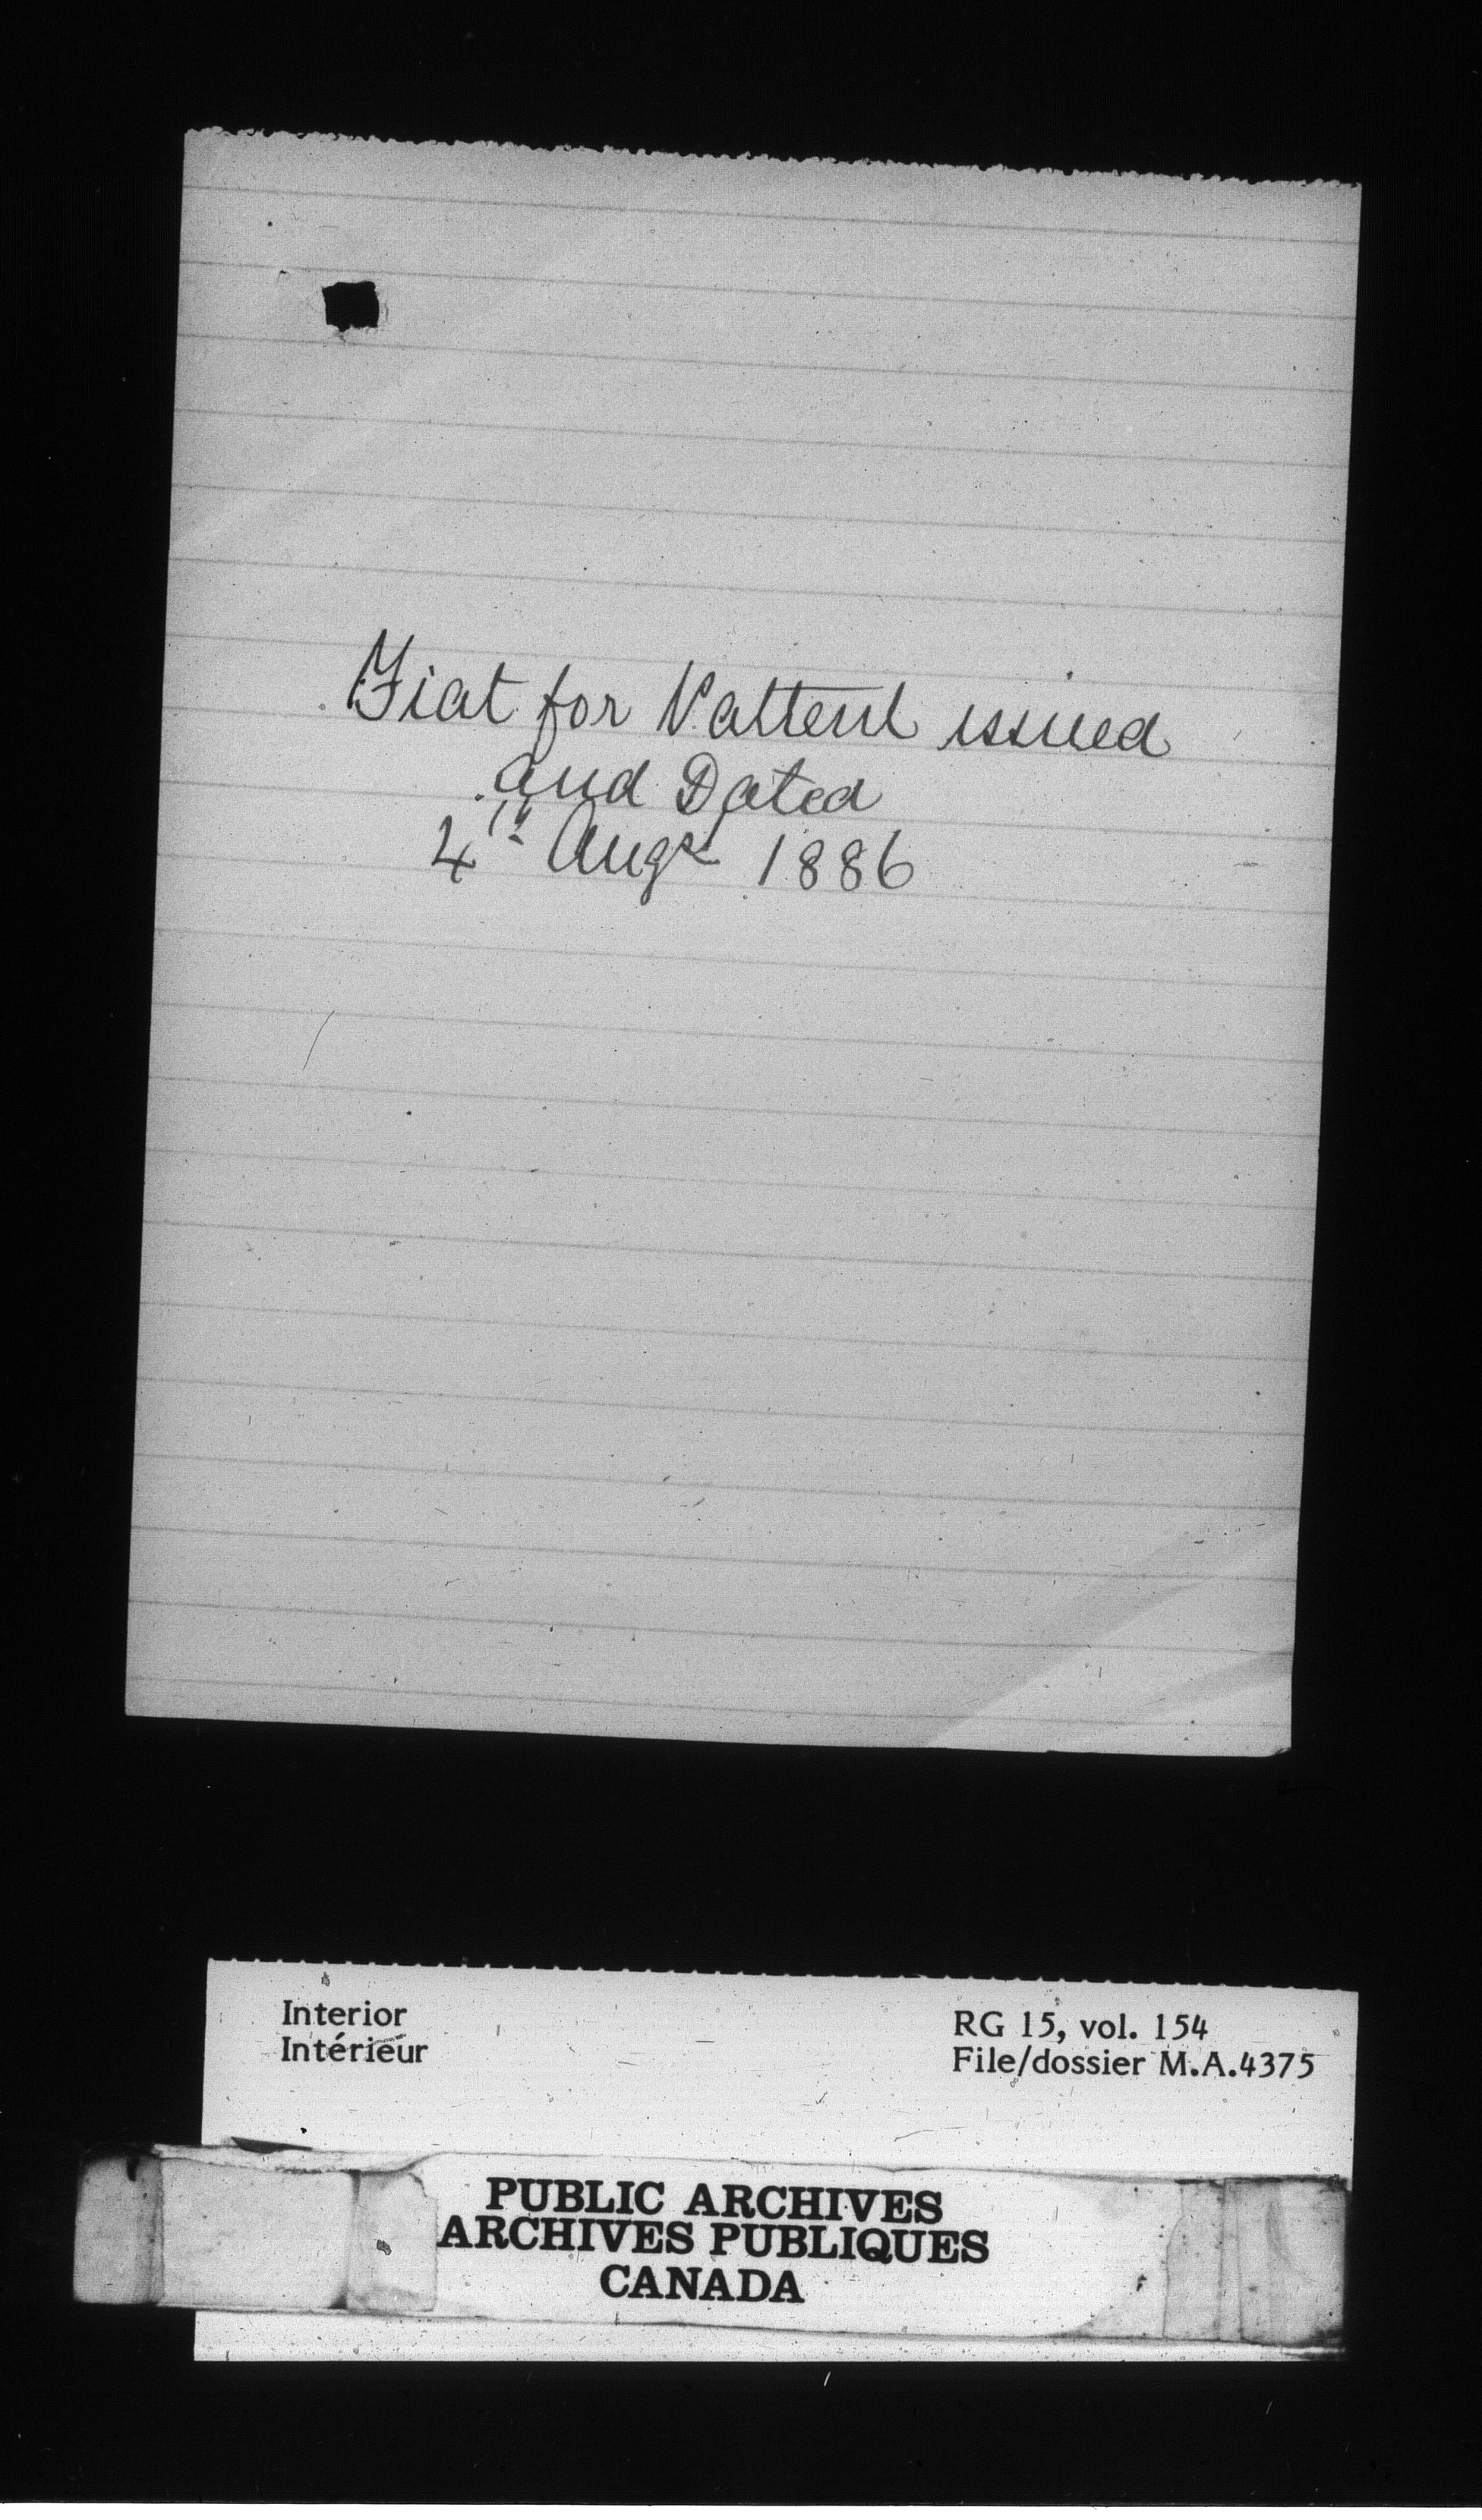 Fiat for Pattent issued
and Dated
4th Augt 1886
Interior
Intérieur
RG 15, vol. 154
File/dossier M.A.4375
PUBLIC ARCHIVES
ARCHIVES PUBLIQUES
CANADA